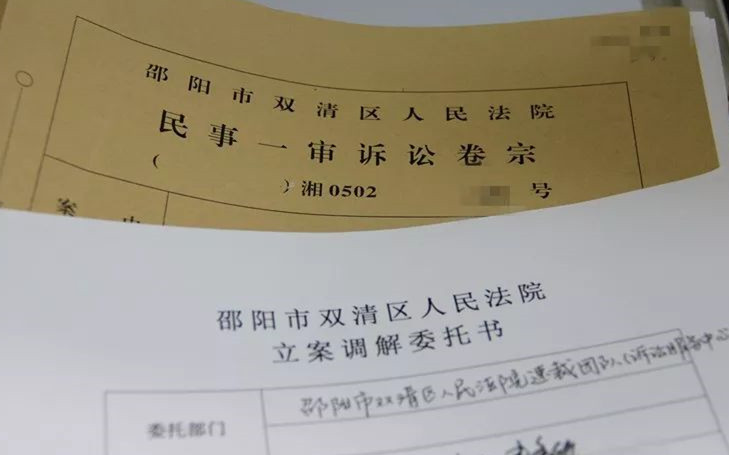 邵阳市双清区人民法院
民事一审诉讼卷宗
( )湘0502 号
案 由
邵阳市双清区人民法院
立案调解委托书
委托部门 邵阳市双清区人民法院速裁团队(诉讼服务中心